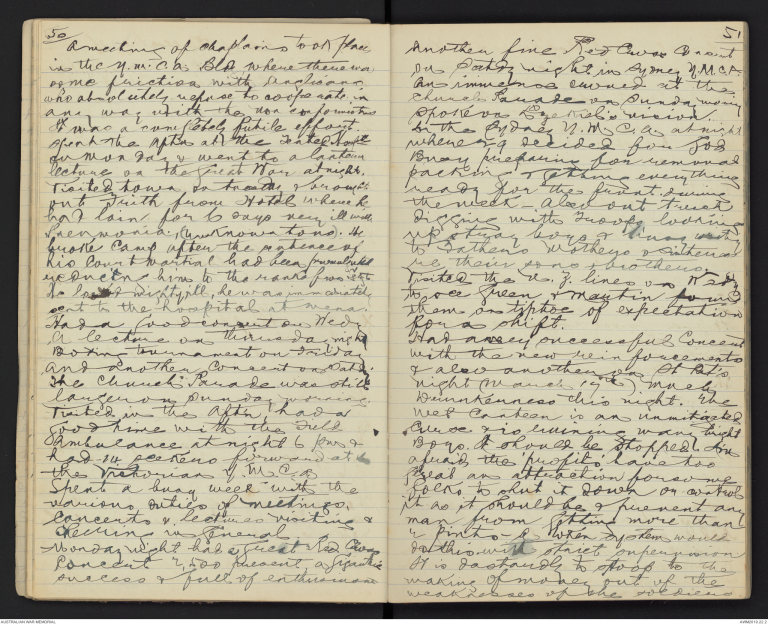 50
A meeting of chaplains took place
in the Y.M.C.A. Bld where there was
some friction with Anglicans
who absolutely refuse to cooperate in
any way with the non conformists
It was a completely futile effort.
spent the aftn at the
on Monday & went to a lantern
lecture on the Great War at night.
Visited town on & brought
out from Hotel where he
had lain for 6 days very ill with
Pneumonia, unknown to us. He
broke Camp after the sentence of
his Court Martial had been promulgated
reducing him to the ranks from
He looked mighty ill, he was immediately
sent to the hospital at Mena.
Had a good concert on Wedy
A lecture on Thursday night
Boxing Tournament on Friday
and another Concert on Satdy
The Church Parade was still
larger on Sunday morning.
Visited in the Aftn, had a
good time with the Field
Ambulance at night 6 pm &
had 14 seekers forward at
the Victorian Y.M.C.A.
Spent a busy week with the
various duties of meetings,
Concerts & lectures visiting &
cheering in general
Monday night had a great Red Cross
Concert 2,500 present, a gigantic
success & full of enthusiasm
51
Another fine Red Cross Concert
on Satdy night in Sydney Y.M.C.A.
An immense crowd at the
church Parade on Sunday morning
spoke on Ezekiel's vision.
In the Sydney Y.M.C.A. at night
where 29 decided for God
Busy preparing for removal
packing & getting everything
ready for the front during
the week - Also out trench
digging with Troops looking
up stray boys &
to Fathers Mothers &
re their sons & brothers.
Visited the N.Z lines on Wedy
to see Green & Martin found
them on tiptoe of expectation
for a shift.
Had a very successful Concert
with the new reinforcements
& also another on St Pat's
night March 17th, much
Drunkenness this night. The
Wet Canteen is an unmitigated
Curse & is ruining many bright
Boys. It should be stopped. I'm
afraid the profits have too
great an attraction for some
folks to shut it down or control
it as it should be & prevent any
man from getting more than
2 pints - a system would
do this with strict supervision
It is dastardly to stoop to the
making of money out of the
weaknesses of the soldiers
AUSTRALIAN WAR MEMORIAL